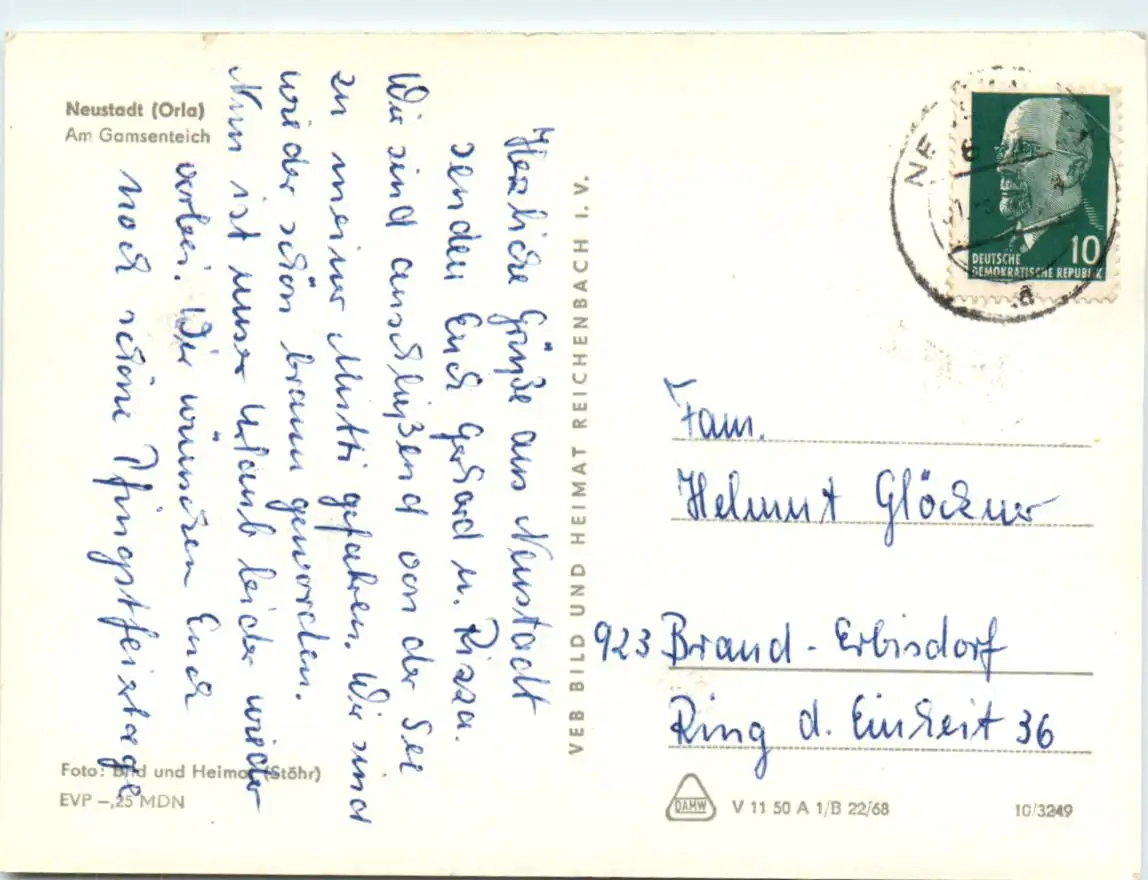 Neustadt (Orla)
Am Gamsenteich
Herzliche Grüße aus Neustadt
senden Euch Gerhard u. Rissa.
Wir sind anschließend von der See
zu meiner Mutti gefahren. Wir sind
wieder schön braun geworden.
Nun ist unser Urlaub leider wieder
vorbei. Wir wünschen Euch
noch schöne Pfingstfeiertage
Foto: Bild und Heimat (Stöhr)
EVP –,25 MDN
VEB BILD UND HEIMAT REICHENBACH I. V.
10
DEUTSCHE
DEMOKRATISCHE REPUBLIK
NE
a
Fam.
Helmut Glöckner
923 Brand-Erbisdorf
Ring d. Einheit 36
DAMW
V 11 50 A 1/B 22/68
10/3249